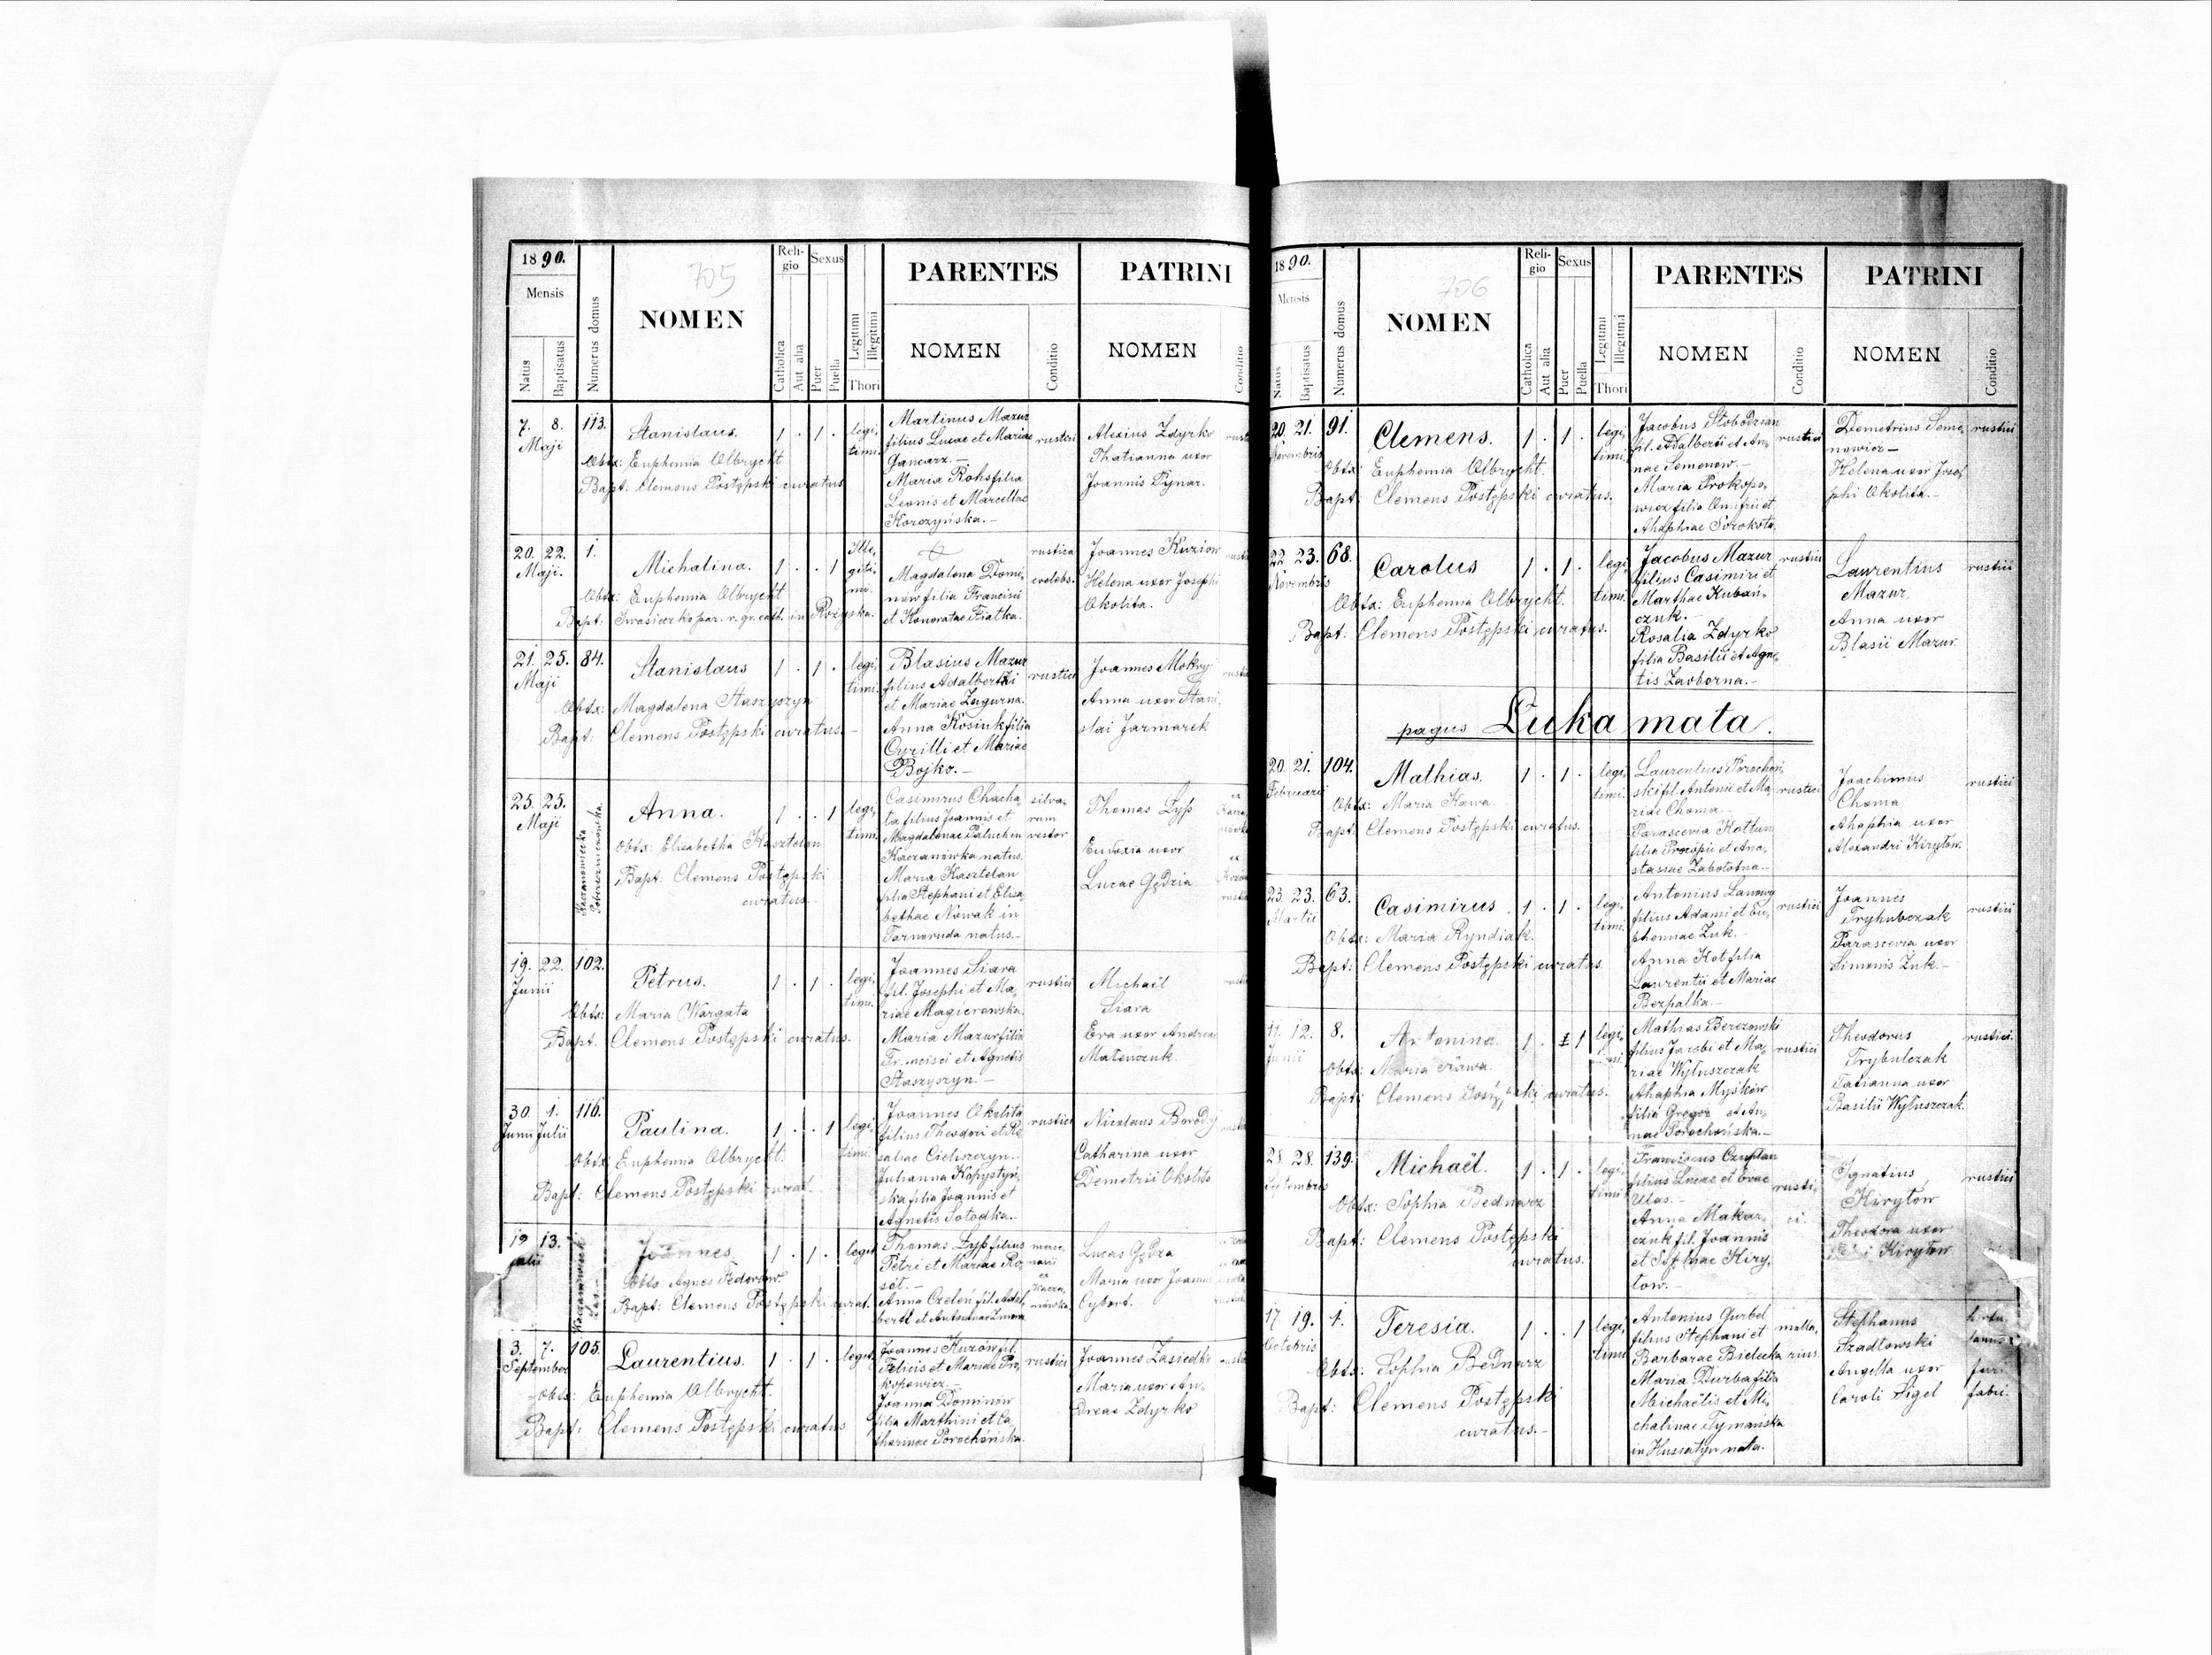 1890.
Mensis
Natus
Baptisatus
Numerus domus
705
NOMEN
Religio
Catholica
Aut alia
Sexus
Puer
Puella
Legitimi
Illegitimi
Thori
PARENTES
NOMEN
Conditio
PATRINI
NOMEN
Conditio
7. 8. 113.
Maji
Stanislaus. 1 . 1 .
legi,
timi.
Obstx: Euphemia Olbrycht
Bapt: Clemens Postępski curatus
Martinus Mazur
filius Lucae et Mariae
Gancarz.-
Maria Rohs filia
Leonis et Marcellae
Korczyńska.-
rustici
Alexius Zdyrko
Thatianna uxor
Joannis Pynar.
20. 22. 1.
Maji.
Michalina. 1 . . 1
Ille,
giti,
mi.
Obstx: Euphemia Olbrycht
Bapt: Iwasieczko par. r. gr. cath. in Rożyska.
Magdalena Domi,
now filia Francisci
et Honoratae Fiatka.
rustica
coelebs.
Joannes Kuziow
Helena uxor Josephi
Okolita.
21. 25. 84.
Maji
Stanislaus 1 . 1 .
legi,
timi.
Obstx: Magdalena Staszyszyn
Bapt: Clemens Postępski curatus.-
Blasius Mazur
filius Adalberti
et Mariae Zugurna.
Anna Kosiuk filia
Cyrilli et Mariae
Bojko.-
rustici
Joannes Mokry
Anna uxor Stani,
slai Jarmarek
25. 25.
Maji
Anna. 1 . . 1
legi,
timi.
Obstx: Elisabetha Kasztelan
Bapt: Clemens Postępski
curatus.
Casimirus Chacha,
ta filius Joannis et
Magdalenae Paluch in
Kaczanówka natus.
Maria Kasztelan
filia Stephani et Elisa
bethae Nowak in
Tarnoruda natus.-
silva,
rum
Thomas Lyß
Eudoxia uxor
Lucae Gędzia
19. 22. 102.
Junii
Petrus. 1 . 1 .
legi,
timi.
Obstx: Maria Wargata
Bapt. Clemens Postępski curatus.
Joannes Siara
fil. Josephi et Ma,
riae Magierowska.
Maria Mazur filia
Francisci et Agnetis
Staszyszyn.-
rustici
Michaël
Siara
Eva uxor Andreae
Mateńczuk.
30. 1. 116.
Junii Julii
Paulina. 1 . . 1
legi,
timi.
Obstx: Euphemia Olbrycht.
Bapt: Clemens Postępski curat.
Joannes Okolita
filius Theodori et Ro
saliae Cichszczyn.
Julianna Kopystyń,
ska filia Joannis et
Agnetis Sotodka.-
rustici
Nicolaus Brody
Catharina uxor
Demetrii Okolita
12 13.
Julii
Joannes. 1 . 1 .
legit
Obstx Agnes Fedorów
Bapt: Clemens Postępski curat.
Thomas Lyß filius
Petri et Mariae Ro,
sół.-
Anna Czeleń fil. Adal,
berti et
Lucas Gędza
Maria uxor Joannis
Cybort.
3. 7. 105.
September
Laurentius. 1 . 1 .
legit.
Obstx: Euphemia Olbrycht.
Bapt: Clemens Postępski curatus
Joannes Kuzów fil.
Felicis et Mariae Pro,
kopowicz.-
Joanna Dominow
filia Marthini et Ca
tharinae Porochońska.
rustici
Joannes Zasiedko
Maria uxor An,
dreae Zdyrko
1890.
Mensis
Natus
Baptisatus
Numerus domus
706
NOMEN
Religio
Catholica
Aut alia
Sexus
Puer
Puella
Legitimi
Illegitimi
Thori
PARENTES
NOMEN
Conditio
PATRINI
NOMEN
Conditio
20. 21. 91.
Novembris
Clemens. 1 . 1 .
legi,
timi.
Obstx: Euphemia Olbrycht.
Bapt: Clemens Postępski curatus.
Jacobus Slobodzian
fil. Adalberti et An,
nae Semenow.-
Maria Prokopo,
wicz filia Onufrii et
Ahaphiae Sorokota.
rustici
Demetrius Seme,
nowicz-
Helena uxor Jose
phi Okolita.-
rustici
22. 23. 68.
Novembris
Carolus 1 . 1 .
legi,
timi.
Obstx: Euphemia Olbrycht.
Bapt: Clemens Postępski curatus.
Jacobus Mazur
filius Casimiri et
Marthae Kubań,
czuk.-
Rosalia Zdyrko
filia Basilii et Agne,
tis Zaoborna.-
rustici
Laurentius
Mazur,
Anna uxor
Blasii Mazur
rustici
pagus Łuka mała.
20. 21. 104.
Februarii
Mathias. 1 . 1 .
legi,
timi.
Obstx: Maria Kawa
Bapt: Clemens Postępski curatus.
Laurentius Porochoń,
ski fil. Antonii et Ma,
riae Choma.-
Parascevia Kottun
filia Procopii et Ana,
stasiae Zabototna.-
rustici
Joachimus
Choma
Ahaphia uxor
Alexandri Kirytow.
rustici
23. 23. 63.
Martii
Casimirus. 1 . 1 .
legi,
timi.
Obstx: Maria Ryndiak.
Bapt: Clemens Postępski curatus.
Antonius Lanowy
filius Adami et Eu,
phemiae Zuk.-
Anna Kob filia
Laurentii et Mariae
Bezpalka.-
rustici
Joannes
Tryhubczak
Parascevia uxor
Simonis Zuk.-
rustici
11. 12. 8.
Junii
Antonina. 1 . 1 1
legi,
Obstx: Maria Kawa.
Bapt: Clemens Postępski curatus.
Mathias Berezowski
filius Jacobi et Ma,
riae Wyłuszczak
Ahaphia Myśków
filia Gregor et An,
nae Porochońska.-
rustici
Theodorus
Trybulczak
Tatianna uxor
Basilii Wyłuszczak.
rustici.
28. 28. 139.
Septembris
Michaël. 1 . 1 .
legi,
timi
Obstx: Sophia Bednarz
Bapt: Clemens Postępski
curatus.
Franciscus Czuplan
filius Lucae et Evae
Ulas.-
Anna Makar,
czuk fil. Joannis
et Sophiae Kiry,
tow.-
rusti,
ci.
Ignatius
Kirytow
Theodora uxor
Kirytow
rustici
17. 19. 1.
Octobris
Teresia. 1 . . 1
legi,
timi
Obstx: Sophia Bednarz
Bapt: Clemens Postępski
curatus.-
Antonius Gurbel
filius Stephani et
Barbarae Bielecka
Maria Durba filia
Michaëlis et Mi,
chalinae Tymańska
in Hussatyn nata.
Stephanus
Szadlowski
Angella uxor
Caroli Sigel
fabri